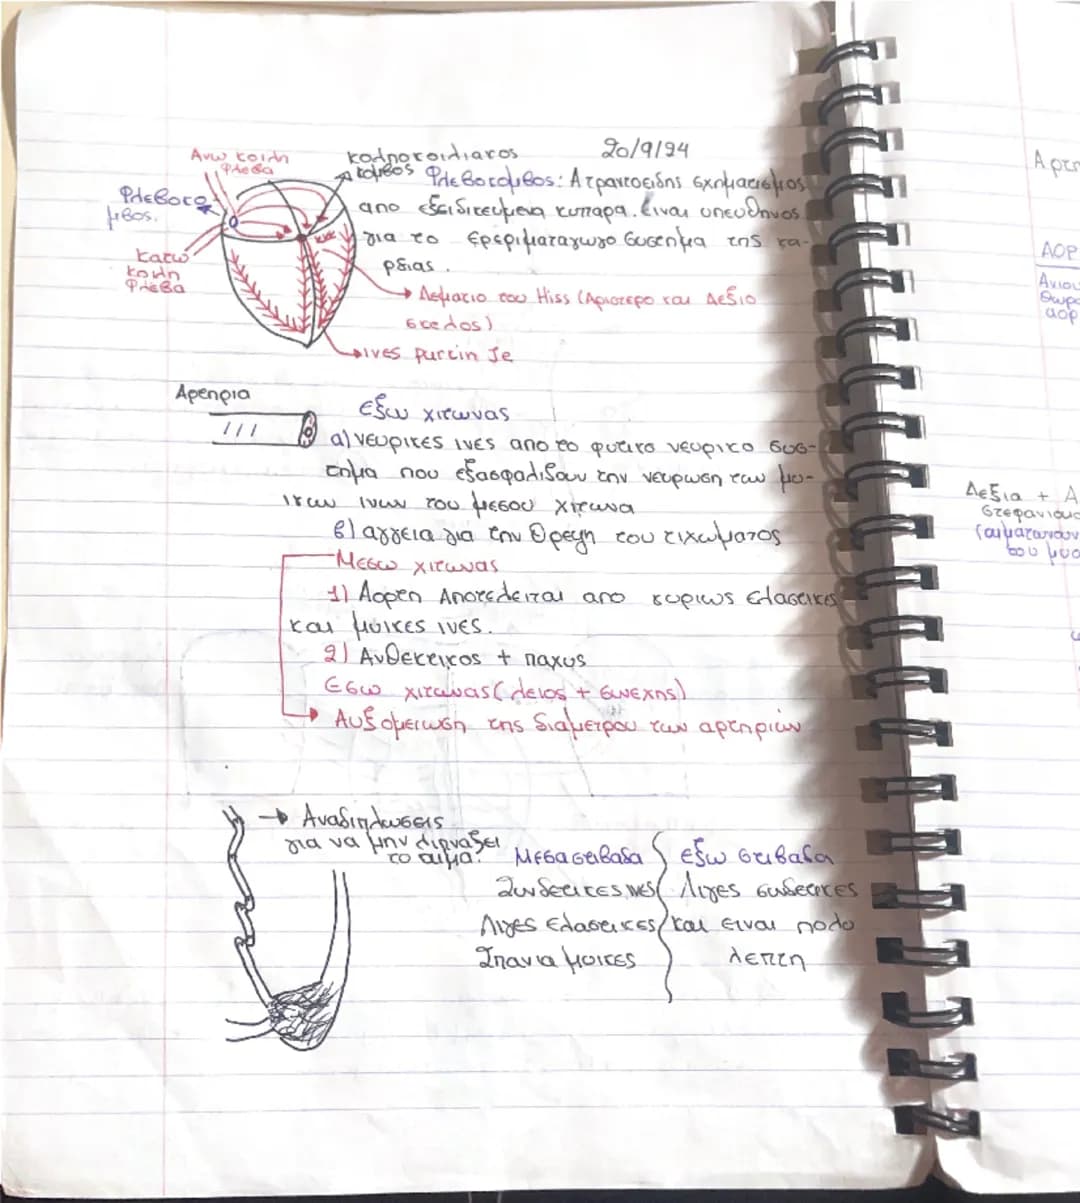 20/9/24
Ανω κοιλη
φλεβα
κολποκοιλιακος
κομβος
Φλεβοκο
μβος.
Κατω
κοιλη
Φλεβα
Φλεβοκομβος: Ατρακτοειδης σχηματισμος
απο εξειδικευμενα κυτταρα. Ειναι υπευθηνος
για το ερεριματαγωγο συστημα της κα-
ρδιας.
Δεματιο του Hiss (Αριστερο και Δεξιο
σκελος)
ινες purcin je
Αρτηρια
Εξω χιτωνας
α) νευρικες ινες απο το φυτικο νευρικο συσ-
τημα που εξασφαλιζουν την νευρωση των μυ-
ικων ινων του μεσου χιτωνα
β) αγγεια για την θρεψη του τιχωματος
Μεσω χιτωνας
1) Αορτη Αποτελειται απο κυριως ελαστικες
και μυικες ινες.
2) Ανθεκτικος + παχυς
Εσω χιτωνας (λειος + συνεχης)
Αυξομειωση της διαμετρου των αρτηριών
Αναδιπλωσεις
για να μην λιρναζει
το αιμα.
Μεσα στιβαδα
Συνδετικες ινες
Λιγες ελαστικες
Σπανια μυικες
Εξω στιβαδα
Λιγες συνδετικες
και ειναι πολυ
λεπτη
Αρτη
ΑΟΡ
Ανιου
Θωρα
αορ
Δεξια + Α
στεφανιαια
του μυο